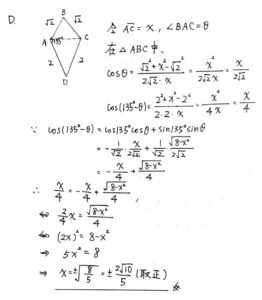 D.
B
√2 √2
A 135° C
2 2
D
令 AC = x , ∠BAC = θ
在 △ABC 中,
cosθ = (√2² + x² - √2²)/(2√2·x) = x²/(2√2x) = x/(2√2)
cos(135°-θ) = (2² + x² - 2²)/(2·2·x) = x²/(4x) = x/4
∵ cos(135°-θ) = cos135°cosθ + sin135°sinθ
= -1/√2 · x/(2√2) + 1/√2 · √(8-x²)/(2√2)
= -x/4 + √(8-x²)/4
∴ x/4 = -x/4 + √(8-x²)/4 ,
⇔ 2/4 x = √(8-x²)/4
⇔ (2x)² = 8-x²
⇔ 5x² = 8
⇒ x = ±√(8/5) = ± 2√10/5 (取正)